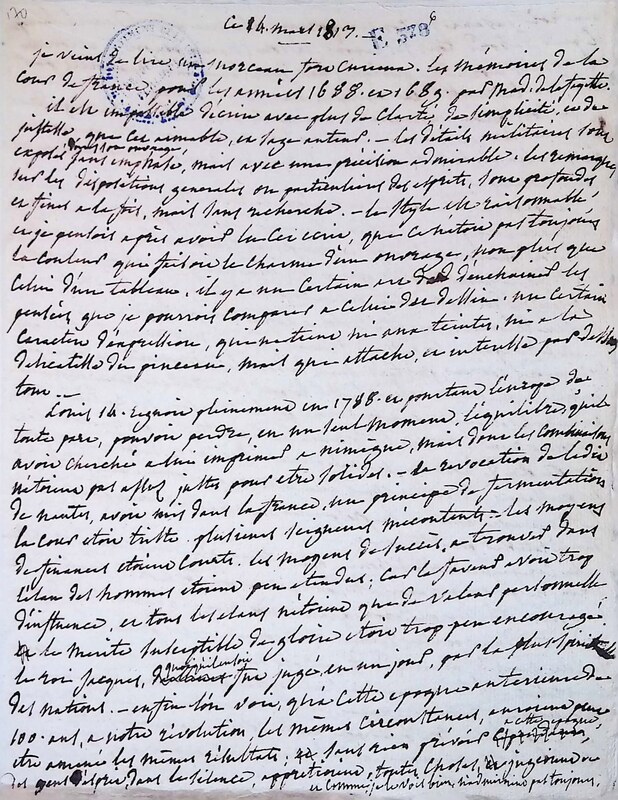 ce 14. mars 1813.
E 378 6
je viens de lire un morceau fort curieux. les mémoires de la
Cour de france, pour les années 1688. et 1689. par Mad. de lafayette.
il est impossible d'écrire avec plus de clarté, de simplicité, et de
justesse, que cet aimable, et sage auteur. – les détails militaires sont
exposés dans son ouvrage sans emphase, mais avec une précision admirable. les remarques,
sur les dispositions generales ou particulieres des esprits, sont profondes
et fines a la fois, mais sans recherche. – le style est raisonnable
et je pensois après avoir lu cet ecrit, que ce n'etoit pas toujours
la couleur qui faisoit le charme d'un ouvrage, non plus que
celui d'un tableau. il y a un certain art d'enchainer les
pensées que je pourrois comparer a celui du dessin. un certain
caractere d'expression, qui ne tient ni aux teintes, ni a la
delicatesse du pinceau, mais qui attache, et interesse par dessus
tout. –
Louis 14. regnoit pleinement en 1788. et pourtant l'europe de
toute part, pouvoit perdre, en un seul moment l'équilibre, qu'il
avoit cherché a lui imprimer a nimegue, mais dont les
n'etoient pas assez justes pour etre solides. – la revocation de l'edit
de nantes, avoit mis dans la france, un principe de fermentation
la cour etoit triste. plusieurs seigneurs mécontents. – les moyens
de finances etoient courts. les moyens de succès, a trouver dans
l'élan des hommes etoient peu etendus; car la faveur avoit trop
d'influence, et tous les elans n'etoient que de valeur personnelle
le merite susceptible de gloire etoit trop peu encouragé.
le roi jacques, quoiqu'il en soit fut jugé, en un jour, par la plus
des nations. – enfin l'on voit, qu'a cette epoque anterieure de
100. ans, a notre révolution, les mêmes circonstances, auroient peut
etre amené les mêmes résultats; sans rien prévoir a cette epoque,
des gens d'esprit, dans le silence, apprétioient toutes choses, et jugeoient
et comme je le vois bien, n'admiroient pas toujours.